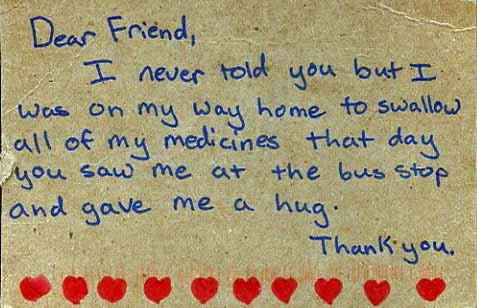 Dear Friend,
I never told you but I
was on my way home to swallow
all of my medicines that day
you saw me at the bus stop
and gave me a hug.
Thank you.